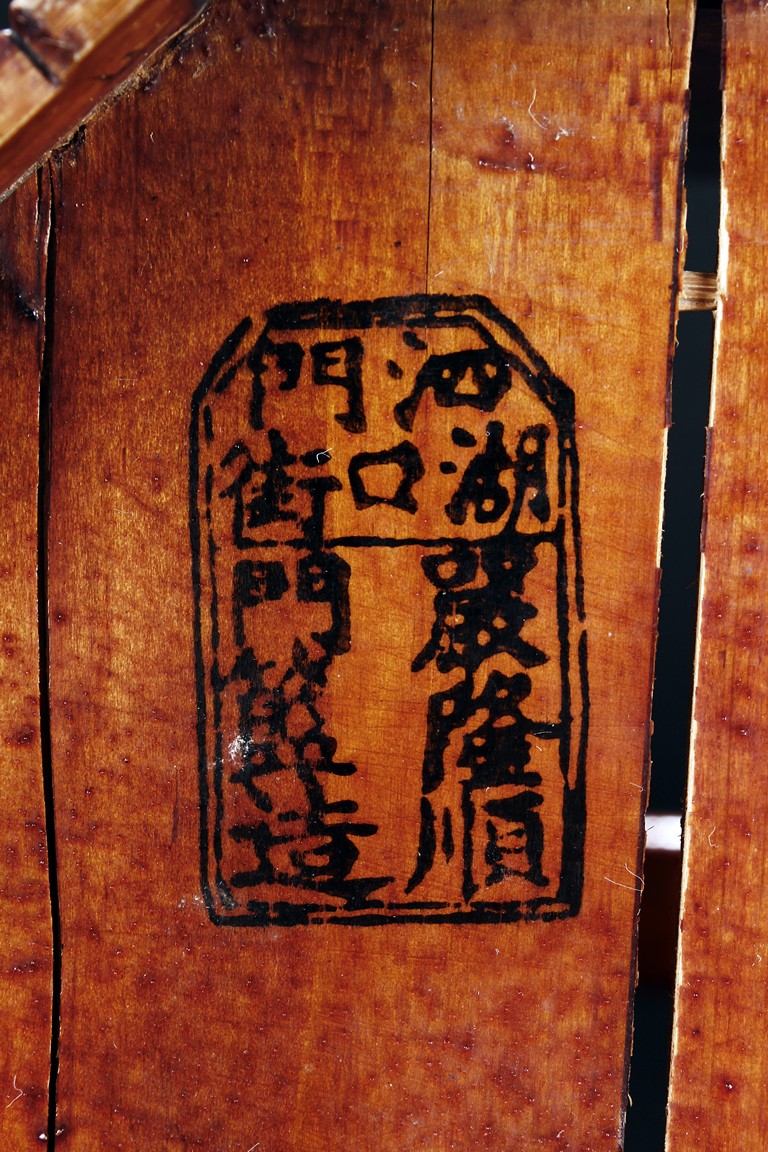 泗門
湖口街
嚴隆順
門造